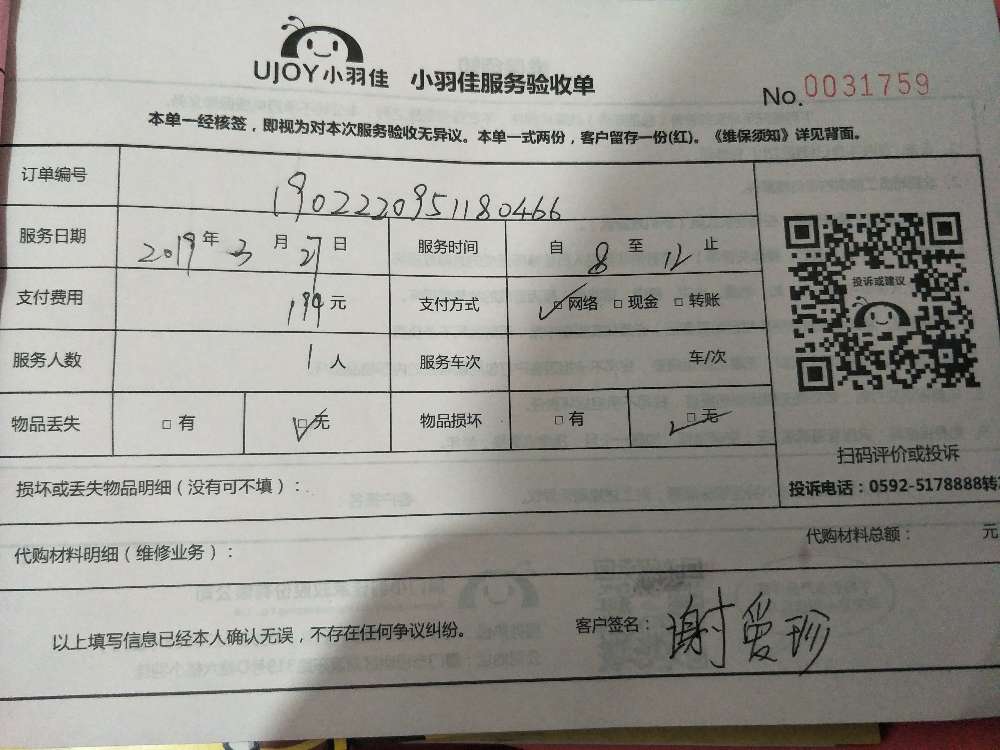 UJOY小羽佳 小羽佳服务验收单
No.0031759
本单一经核签，即视为对本次服务验收无异议。本单一式两份，客户留存一份(红)。《维保须知》详见背面。
订单编号 1902220951180466
服务日期 2019年3月27日 服务时间 自8至12止
支付费用 199元 支付方式 ☑网络 □现金 □转账
服务人数 1人 服务车次 车/次
物品丢失 □有 ☑无 物品损坏 □有 ☑无
投诉或建议
扫码评价或投诉
投诉电话：0592-5178888转
损坏或丢失物品明细（没有可不填）：
代购材料明细（维修业务）： 代购材料总额： 元
以上填写信息已经本人确认无误，不存在任何争议纠纷。 客户签名：谢爱珍